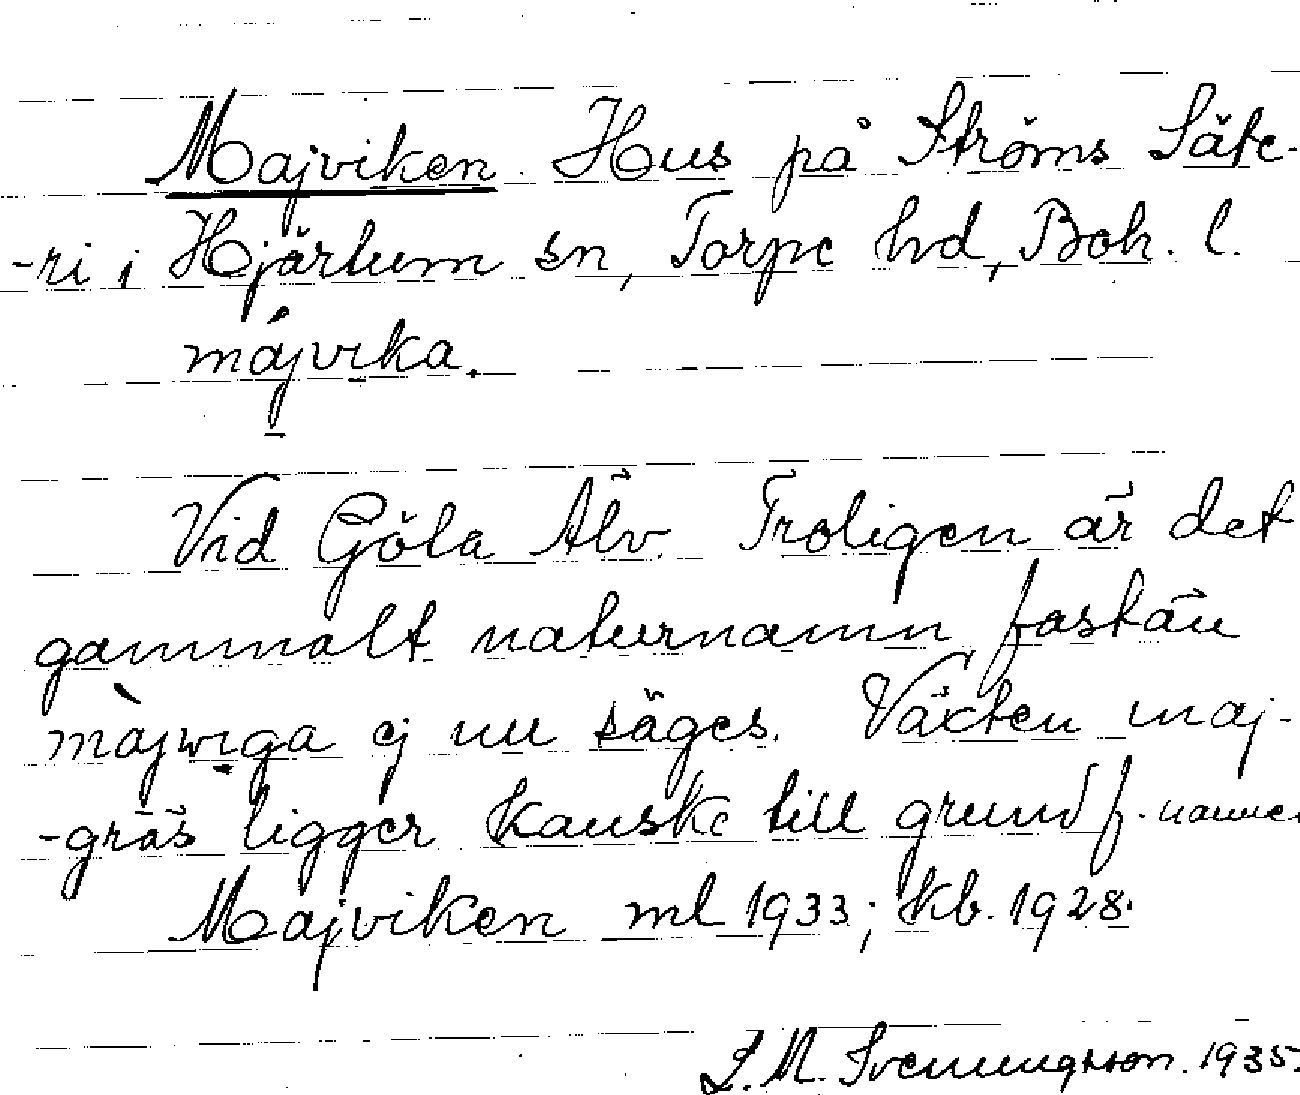 Majviken. Hus på Ströms Säte-
-ri i Hjärtum sn, Torpe hd, Boh. l.
májvika.
Vid Göta Älv. Troligen är det
gammalt naturnamn, fastän
màjviga ej nu säges. Växten maj-
-gräs ligger kanske till grund f. namnet
Majviken ml 1933; kb. 1928.
L. M. Svenungsson. 1935.